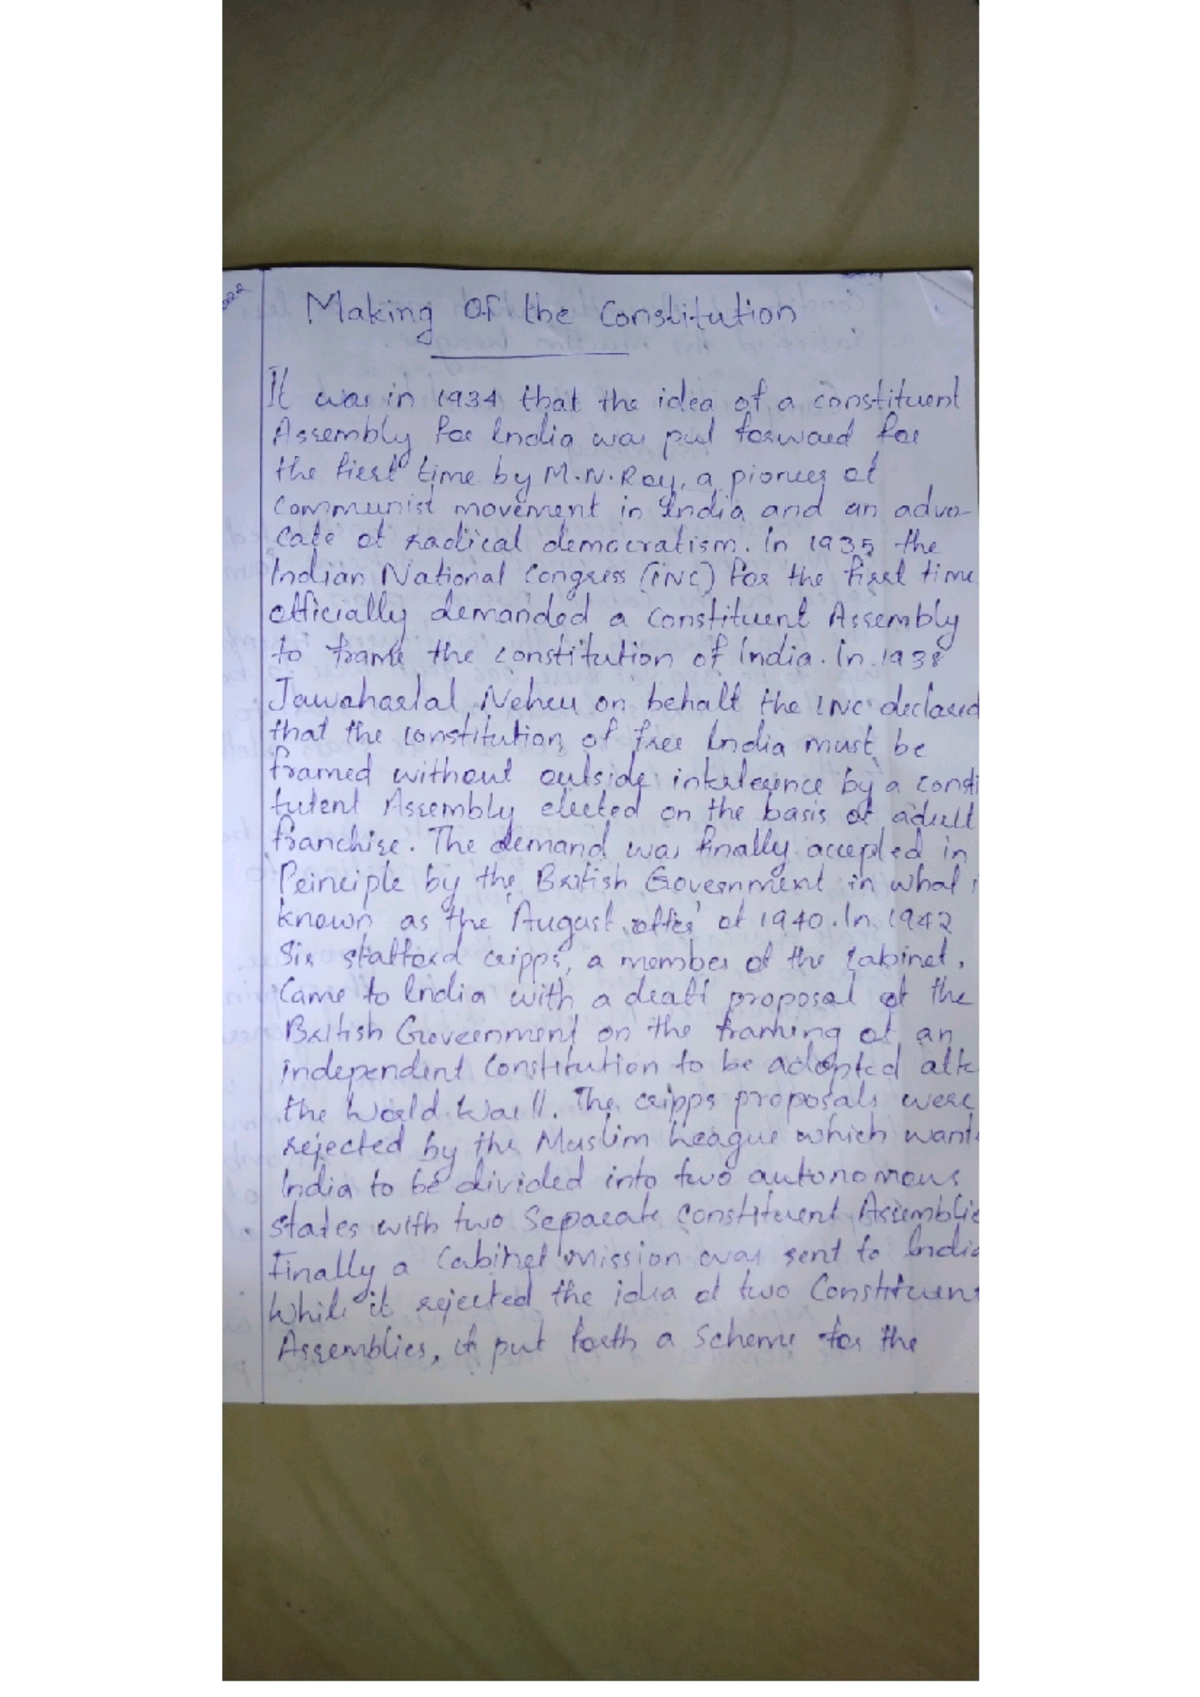 Making Of the Constitution
It was in 1934 that the idea of a constituent
Assembly for India was put forward for
the first time by M.N.Roy, a pioneer of
communist movement in India and an advo-
cate of radical democratism. In 1935 the
Indian National Congress (INC) for the first time
officially demanded a constituent Assembly
to frame the constitution of India. In 1938
Jawaharlal Nehru on behalf the INC declared
that the constitution of free India must be
framed without outside interference by a consti
tutent Assembly elected on the basis of adult
franchise. The demand was finally accepted in
Principle by the British Government in what i
known as the 'August offer' of 1940. In 1942
Sir stafford cripps, a member of the cabinet,
Came to India with a draft proposal of the
British Government on the framing of an
independent Constitution to be adopted afte
the World War II. The cripps proposals were
rejected by the Muslim League which wante
India to be divided into two autonomous
states with two Separate Constituent Assemblie
Finally a Cabinet Mission was sent to India
While it rejected the idea of two Constituent
Assemblies, it put forth a Scheme for the